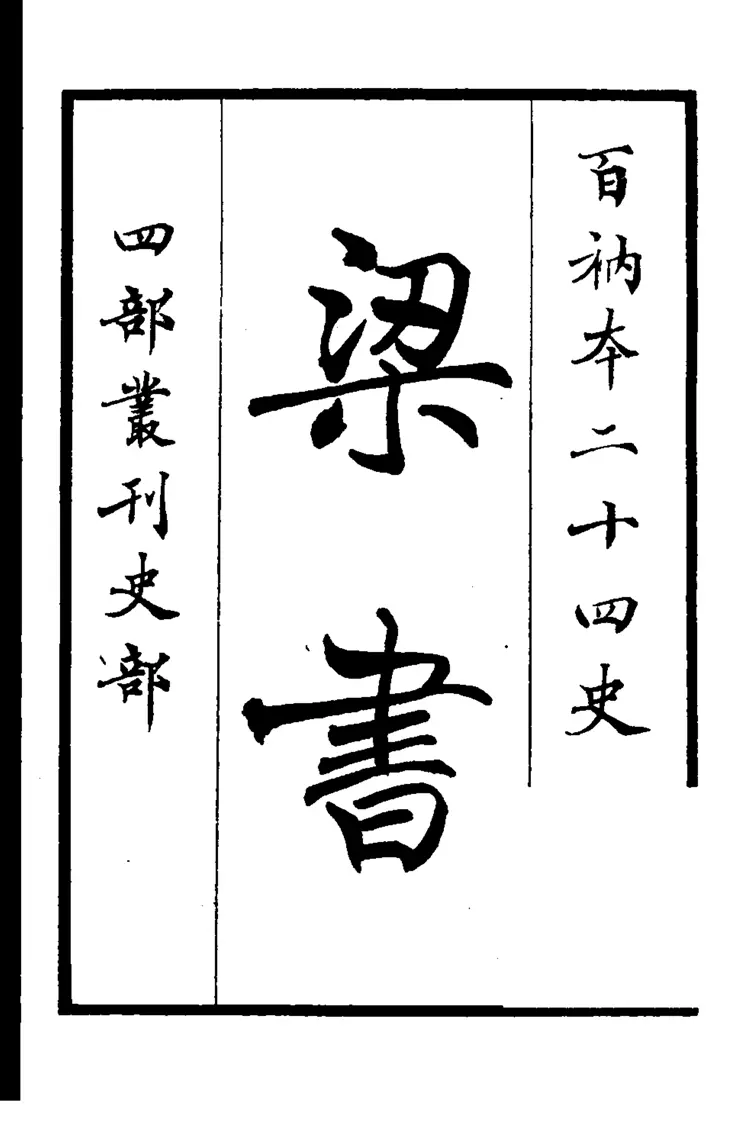 百衲本二十四史
梁書
四部叢刊史部